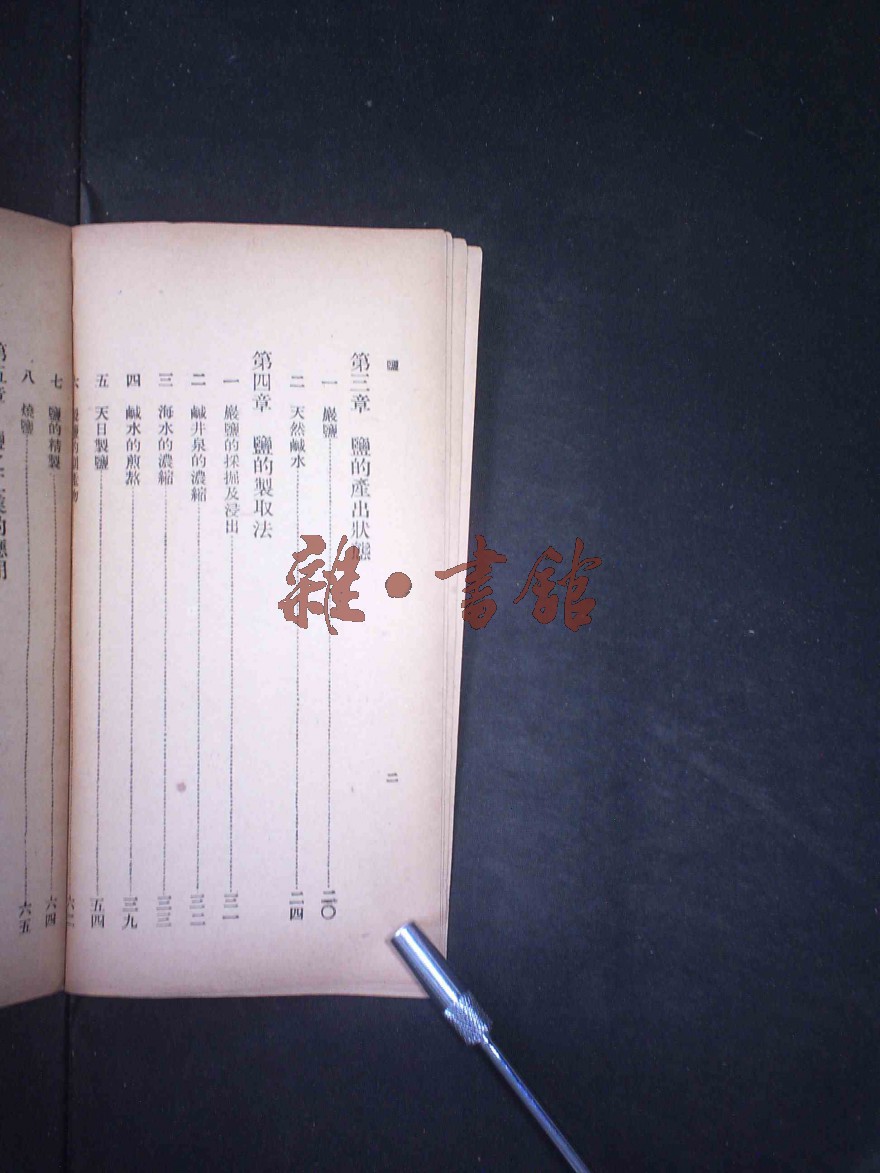 鹽
二
第三章 鹽的產出狀態
一 巖鹽……二〇
二 天然鹹水……二四
第四章 鹽的製取法
一 巖鹽的採掘及浸出……三一
二 鹹井泉的濃縮……三二
三 海水的濃縮……三三
四 鹹水的煎熬……三九
五 天日製鹽……五四
七 鹽的精製……六四
八 燒鹽……六五
雜·書館